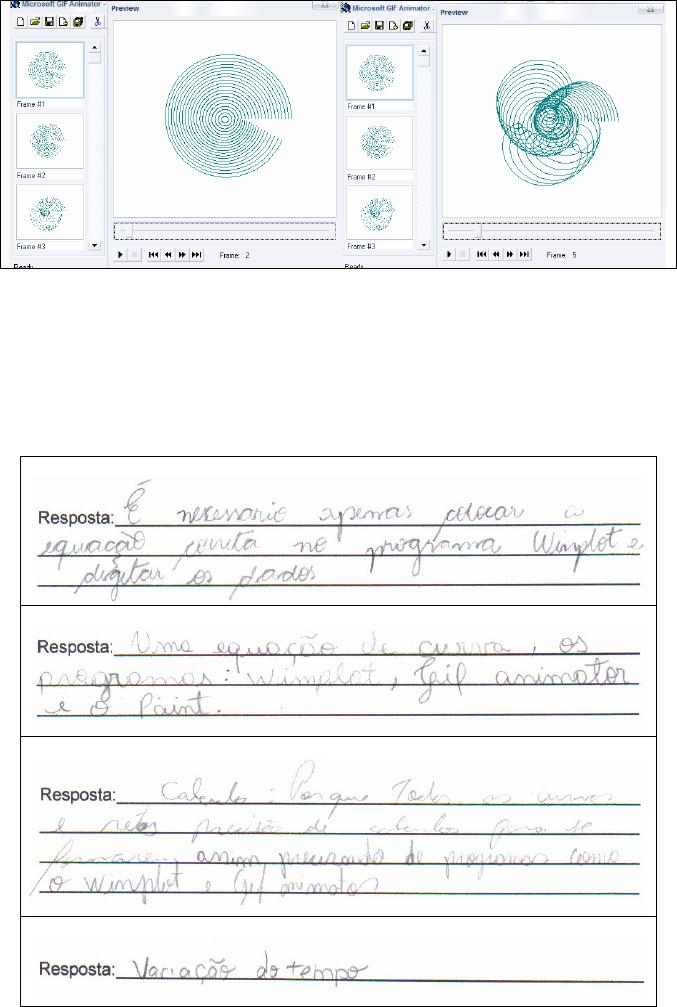 Microsoft GIF Animator -
Preview
Frame #1
Frame #2
Frame #3
Ready
Frame: 2
Microsoft GIF Animator -
Preview
Frame #1
Frame #2
Frame #3
Ready
Frame: 5
Resposta: É necessario apenas colocar a
equação correta no programa Winplot e
digitar os dados
Resposta: Uma equação de curva, os
programas: Wimplot, Gif animator
e o Paint.
Resposta: Calculos: Porque Todas as curvas
e retas precisão de calculos para se
formarem, assim precisando de programas como
o Winplot e Gif animator
Resposta: Variação do tempo